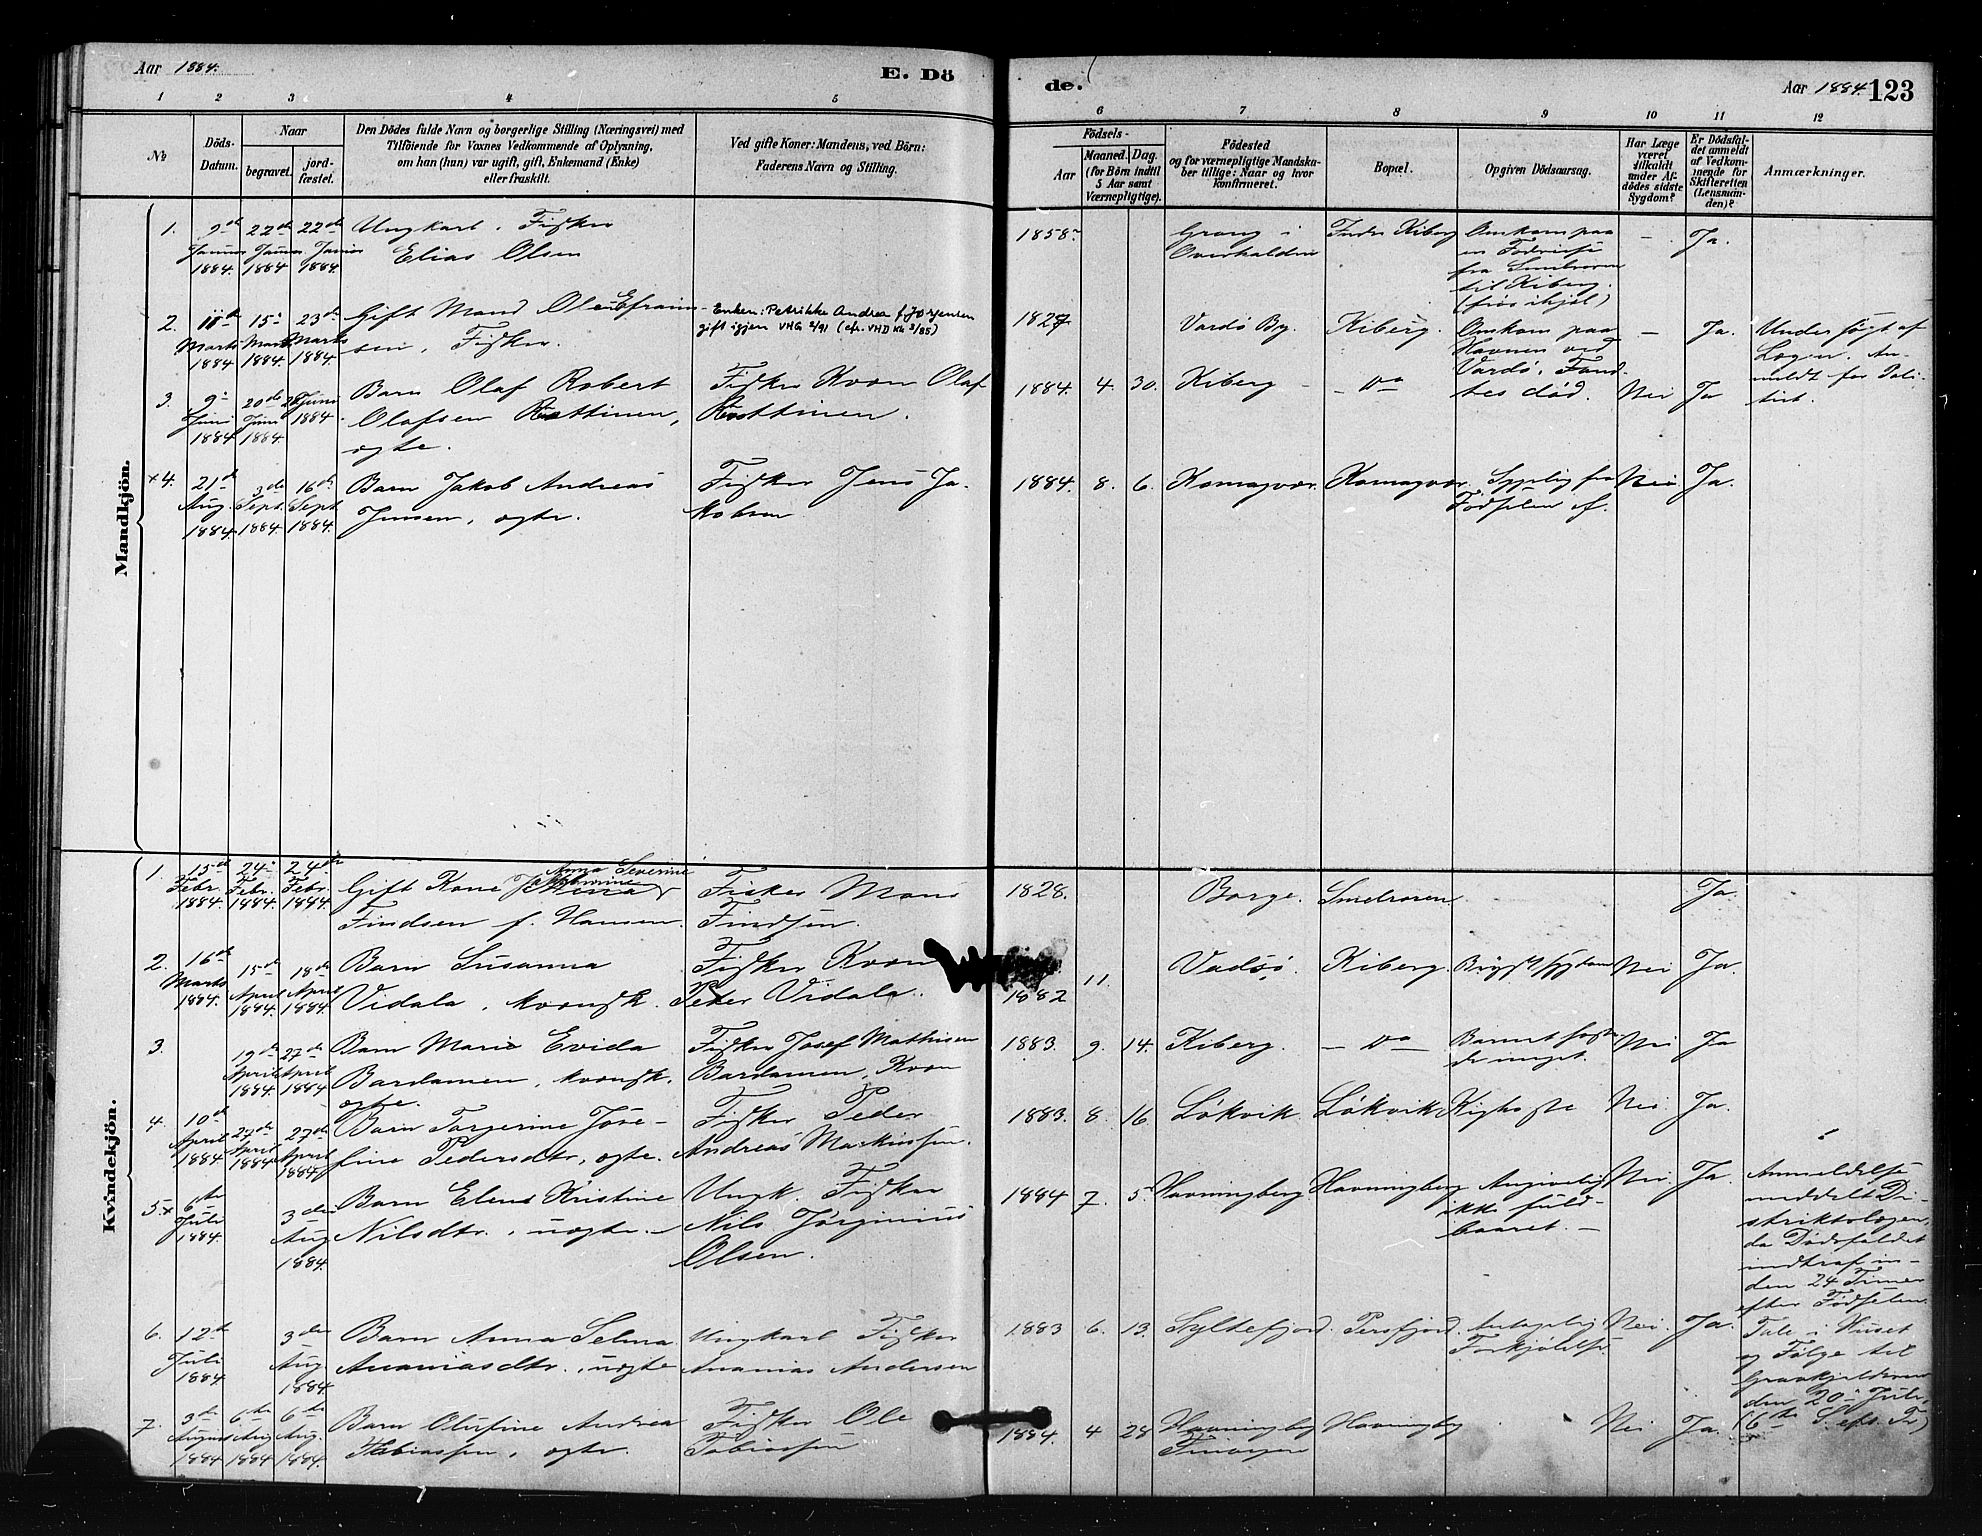 Aar 1884.
E. Dö
de.
Aar 1884. 123
1 2 3 4 5 6 7 8 9 10 11 12
№
Döds-
Datum.
Naar
begravet.
jord-
fæstet.
Den Dödes fulde Navn og borgerlige Stilling (Næringsvei) med
Tilföiende for Voxnes Vedkommende af Oplysning,
om han (hun) var ugift, gift, Enkemand (Enke)
eller fraskilt.
Ved gifte Koner: Mandens, ved Börn:
Faderens Navn og Stilling.
Födsels-
Aar
Maaned.
Dag.
(for Börn indtil
5 Aar samt
Værnepligtige).
Födested
og for værnepligtige Mandska-
ber tillige: Naar og hvor
konfirmeret.
Bopæl.
Opgiven Dödsaarsag.
Har Læge
været
tilkaldt
under Af-
dödes sidste
Sygdom?
Er Dödsfal-
det anmeldt
af Vedkom-
mende for
Skifteretten
(Lensman-
den)?
Anmærkninger.
Mandkjön.
1. 9de 22de 22de Ungkarl, Fisker 1858. Grong i Indre Kiberg Omkom paa – Ja.
Januar Januar Januar Elias Olsen Overhalden en Fodreise
1884. 1884 1884 fra Smelroren
til Kiberg.
(frøs ihjel)
2. 11te 15de 23de Gift Mand Ole Efraim- Enken: Petrikke Andrea f. Jörgensen 1827 Vardö By. Kiberg. Omkom paa – Ja. Undersøgt af
Marts Marts Marts sen, Fisker. gift igjen VHG 2/91 (cfr. VHD Kk 3/85) Havnen ved Lægen. An-
1884 1884 1884 Vardö. Fand- meldt for Poli-
tes död. tiet.
3. 9de 20de Juni Barn Olaf Robert Fisker Kvæn Olaf 1884. 4. 30. Kiberg – do Nei Ja
Juni Juni 1884 Olafsen Rottinen, Rottinen.
1884 1884. ægte.
+4. 21de 3de 16de Barn Jakob Andreas Fisker Jens Ja- 1884. 8. 6. Komagvær. Komagvær. Sygelig fra Nei Ja.
Aug. Sept. Sept. Jensen, ægte. kobsen Fødselen af.
1884. 1884. 1884.
Kvindekjön.
1. 15de 24de 24de Anna Severine
Febr. Febr. Febr. Gift Kone Fisker Mons 1828. Borge. Smelroren Ja.
1884. 1884. 1884. Findsen f. Hansen Findsen.
2. 16de 15de 18de Barn Susanna Fisker Kvæn 11. Vadsö. Kiberg. Brystsygdom Nei Ja.
Marts April April Vidala, kvænsk. Peder Vidala. 1882
1884. 1884. 1884.
3. 19de 27de Barn Marie Evida Fisker Josef Mathisen 1883. 9. 14. Kiberg. – do – Nei Ja
April April Bardamen, kvænsk. Bardamen, Kvæn
1884 1884 ægte.
4. 10de 27de 27de Barn Torgerine Jose- Fisker Peder 1883. 8. 16. Lökvik. Lökvik Kighoste Nei Ja.
April April April fine Pedersdtr, ægte. Andreas Markussen.
1884 1884 1884
5+ 6te 3de Barn Elene Kristine Ungk. Fisker 1884 7. 5. Havningberg Havningberg Angivelig Nei. Ja. Anmeldelse
Juli Aug Nilsdtr., uægte. Nils Jörginius ikke fuld- meddelt Di-
1884. 1884. Olsen. baaret. – striktslægen,
da Dødsfaldet
indtraf in-
den 24 Timer
efter Fødselen.
6. 12te 3de Barn Anna Selma Ungkarl Fisker 1883 6. 13. Syltefjord. Persfjord. Antagelig Nei. Ja. Tale i Huset
Juli Aug. Ananiasdtr., uægte Ananias Andersen Forkjølelse. og Følge til
1884 1884
den 20de Juli.
7. 3de 6te 6te Barn Olufine Andrea Fisker Ole 1884. 4 28 Havningberg Havningberg Nei Ja.
August Aug Aug. Tobiassen, ægte. Tobiassen
1884 1884 1884.